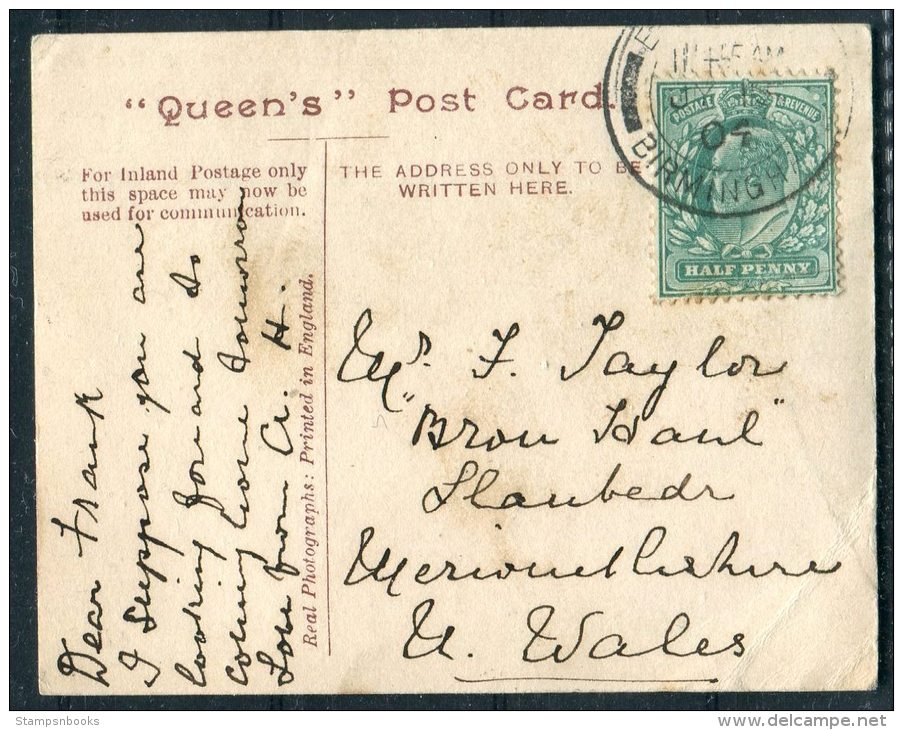 "Queen's" Post Card.
For Inland Postage only
this space may now be
used for communication.
THE ADDRESS ONLY TO BE
WRITTEN HERE.
Real Photographs: Printed in England.
Dear Frank
I suppose you are
looking forward to
coming home tomorrow
Love from A. H.
Mr. F. Taylor
"Bron Haul"
Llanbedr
Merionethshire
N. Wales
POSTAGE & REVENUE
HALF PENNY
AM
04
BIRMINGH
Stampsnbooks
www.delcampe.net